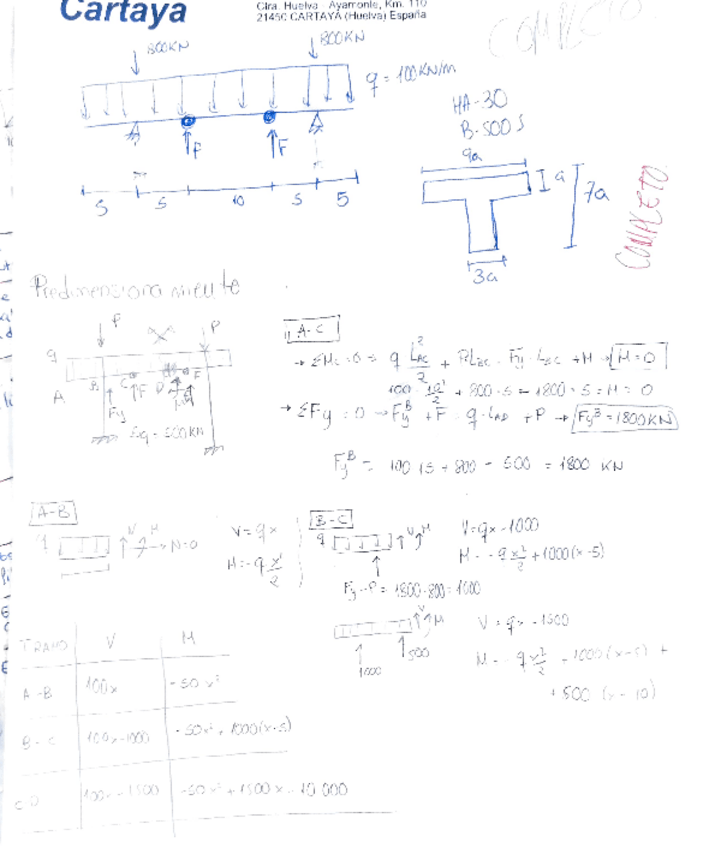 Cartaya
Ctra. Huelva - Ayamonte, Km. 110
21450 CARTAYA (Huelva) España
COMPLETO
800KN
800KN
q = 100KN/m
HA-30
B-500S
F
F
5
5
10
5
5
9a
a
7a
3a
COMPLETO
Predimensionamiento
P
P
q
A
B
C
F
D
F
Fy
5q = 500KN
A-C
→ ΣMc = 0 = q L²AC/2 + P·LBC - Fy · LBC + M → M = 0
100 · 10²/2 + 800 · 5 - 1800 · 5 = M = 0
→ ΣFy = 0 → FyB + F = q · LAD + P → FyB = 1800KN
FyB = 100 · 15 + 800 - 500 = 1800 KN
A-B
q
V M
N=0
V = qx
M = -q x²/2
B-C
q
V M
V = qx - 1000
M = - q x²/2 + 1000(x-5)
Fy - P = 1800 - 800 = 1000
V M
1000
500
V = qx - 1500
M = - q x²/2 - 1000(x-5) +
+ 500 (x-10)
TRAMO V M
A-B 100x -50x²
B-C 100x-1000 -50x² + 1000(x-5)
CD 100x-1500 -50x² + 1500x - 10 000